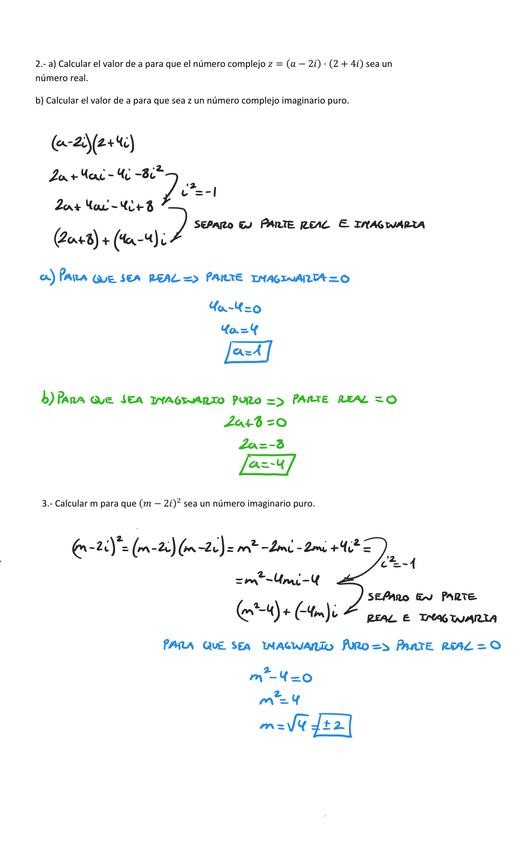 2.- a) Calcular el valor de a para que el número complejo z = (a − 2i) · (2 + 4i) sea un
número real.
b) Calcular el valor de a para que sea z un número complejo imaginario puro.
(a-2i)(2+4i)
2a+4ai-4i-8i²
i²=-1
2a+4ai-4i+8
SEPARO EN PARTE REAL E IMAGINARIA
(2a+8)+(4a-4)i
a) PARA QUE SEA REAL => PARTE IMAGINARIA=0
4a-4=0
4a=4
a=1
b) PARA QUE SEA IMAGINARIO PURO => PARTE REAL =0
2a+8=0
2a=-8
a=-4
3.- Calcular m para que (m − 2i)² sea un número imaginario puro.
(m-2i)²=(m-2i)(m-2i)=m²-2mi-2mi+4i²=
i²=-1
=m²-4mi-4
(m²-4)+(-4m)i
SEPARO EN PARTE
REAL E IMAGINARIA
PARA QUE SEA IMAGINARIO PURO => PARTE REAL =0
m²-4=0
m²=4
m=√4=±2